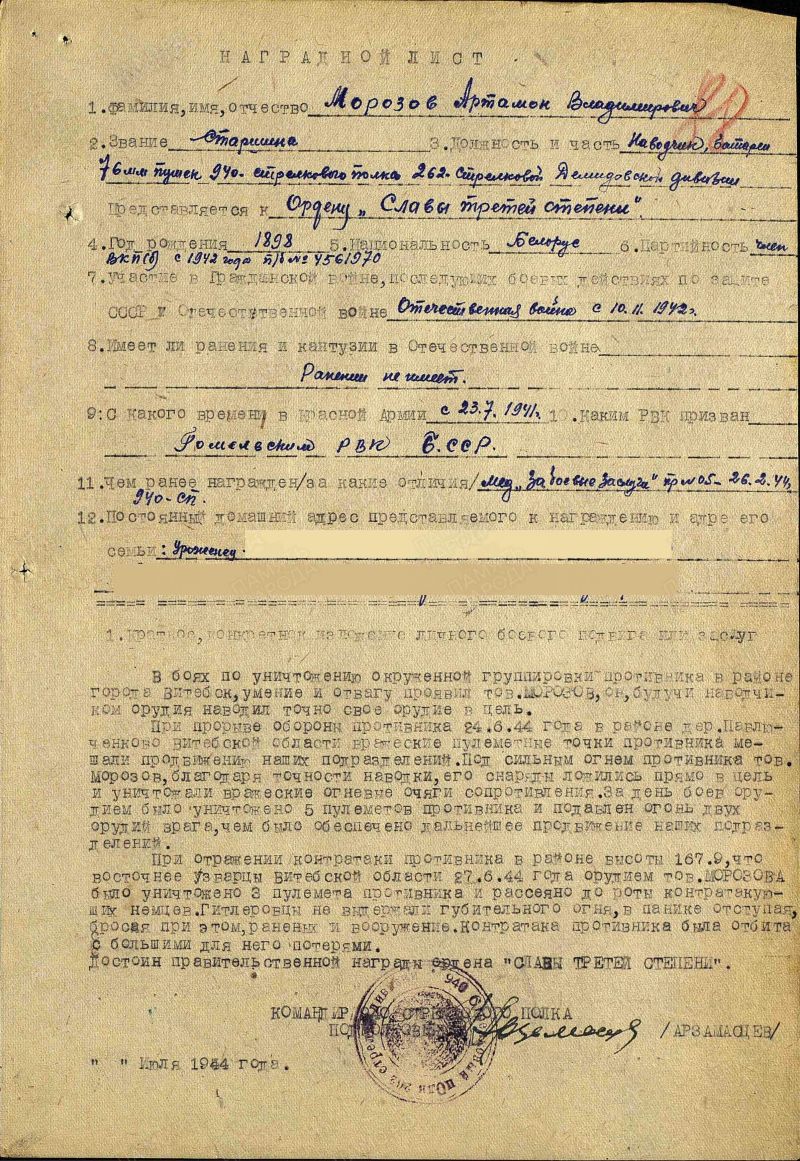 НАГРАДНОЙ ЛИСТ
1. Фамилия, имя, отчество Морозов Артамон Владимирович
2. Звание Старшина 3. Должность и часть Наводчик, батареи
76 мм пушек 940-стрелкового полка 262-стрелковой Демидовской дивизии
Представляется к Ордену „Славы третей степени".
4. Год рождения 1898 5. Национальность Белорус 6. Партийность член
ВКП(б) с 1942 года п/б № 4561970
7. Участие в Гражданской войне, последующих боевых действиях по защите
СССР и Отечественной войне Отечественная война с 10.11.1942г.
8. Имеет ли ранения и кантузии в Отечественной войне
Ранений не имеет.
9: С какого времени в Красной Армии с 23.7.1941г. 10. Каким РВК призван
Гомельским РВК БССР.
11. Чем ранее награжден/за какие отличия/ мед „За боевые заслуги" пр № 05- 26.2.44,
940-сп.
12. Постоянный домашний адрес представляемого к награждению и адре его
семьи: Уроженец
1. Краткое, конкретное изложение личного боевого подвига или заслуг
В боях по уничтожению окруженной группировки противника в районе
города Витебск, умение и отвагу проявил тов. МОРОЗОВ, он, будучи наводчи-
ком орудия наводил точно свое орудие в цель.
При прорыве обороны противника 24.6.44 года в районе дер. Павлю-
ченково Витебской области вражеские пулеметные точки противника ме-
шали продвижению наших подразделений. Под сильным огнем противника тов.
Морозов, благодаря точности наводки, его снаряды ложились прямо в цель
и уничтожали вражеские огневые очяги сопротивления. За день боев ору-
дием было уничтожено 5 пулеметов противника и подавлен огонь двух
орудий врага, чем было обеспечено дальнейшее продвижение наших подраз-
делений.
При отражении контратаки противника в районе высоты 167.9, что
восточнее Узварцы Витебской области 27.6.44 года орудием тов. МОРОЗОВА
было уничтожено 3 пулемета противника и рассеяно до роты контратакую-
щих немцев. Гитлеровцы не выдержали губительного огня, в панике отступая,
бросая при этом, раненых и вооружение. Контратака противника была отбита
с большими для него потерями.
Достоин правительственной награды ордена "СЛАВЫ ТРЕТЕЙ СТЕПЕНИ".
КОМАНДИР 940 СТРЕЛКОВОГО ПОЛКА
/АРЗАМАСЦЕВ/
" " Июля 1944 года.